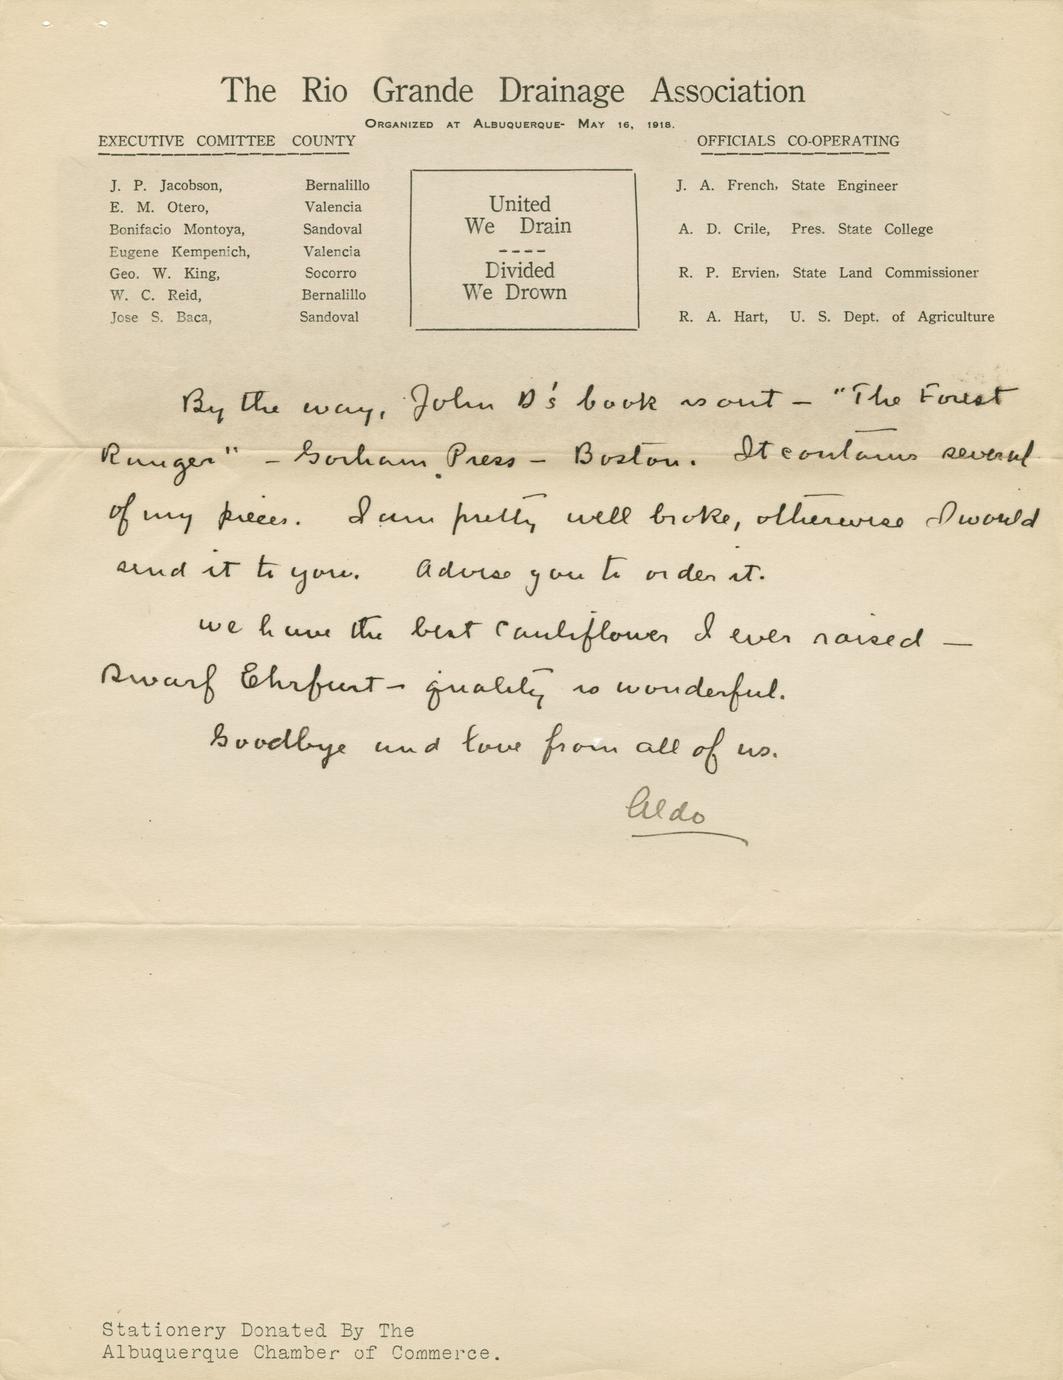 The Rio Grande Drainage Association
Organized at Albuquerque- May 16, 1918.
EXECUTIVE COMITTEE COUNTY
OFFICIALS CO-OPERATING
J. P. Jacobson, Bernalillo
E. M. Otero, Valencia
Bonifacio Montoya, Sandoval
Eugene Kempenich, Valencia
Geo. W. King, Socorro
W. C. Reid, Bernalillo
Jose S. Baca, Sandoval
United
We Drain
----
Divided
We Drown
J. A. French, State Engineer
A. D. Crile, Pres. State College
R. P. Ervien, State Land Commissioner
R. A. Hart, U. S. Dept. of Agriculture
By the way, John D's book is out - "The Forest
Ranger" - Gorham Press - Boston. It contains several
of my pieces. I am pretty well broke, otherwise I would
send it to you. Advise you to order it.
We have the best Cauliflower I ever raised -
Dwarf Ehrfurt - quality is wonderful.
Goodbye and love from all of us.
Aldo
Stationery Donated By The
Albuquerque Chamber of Commerce.